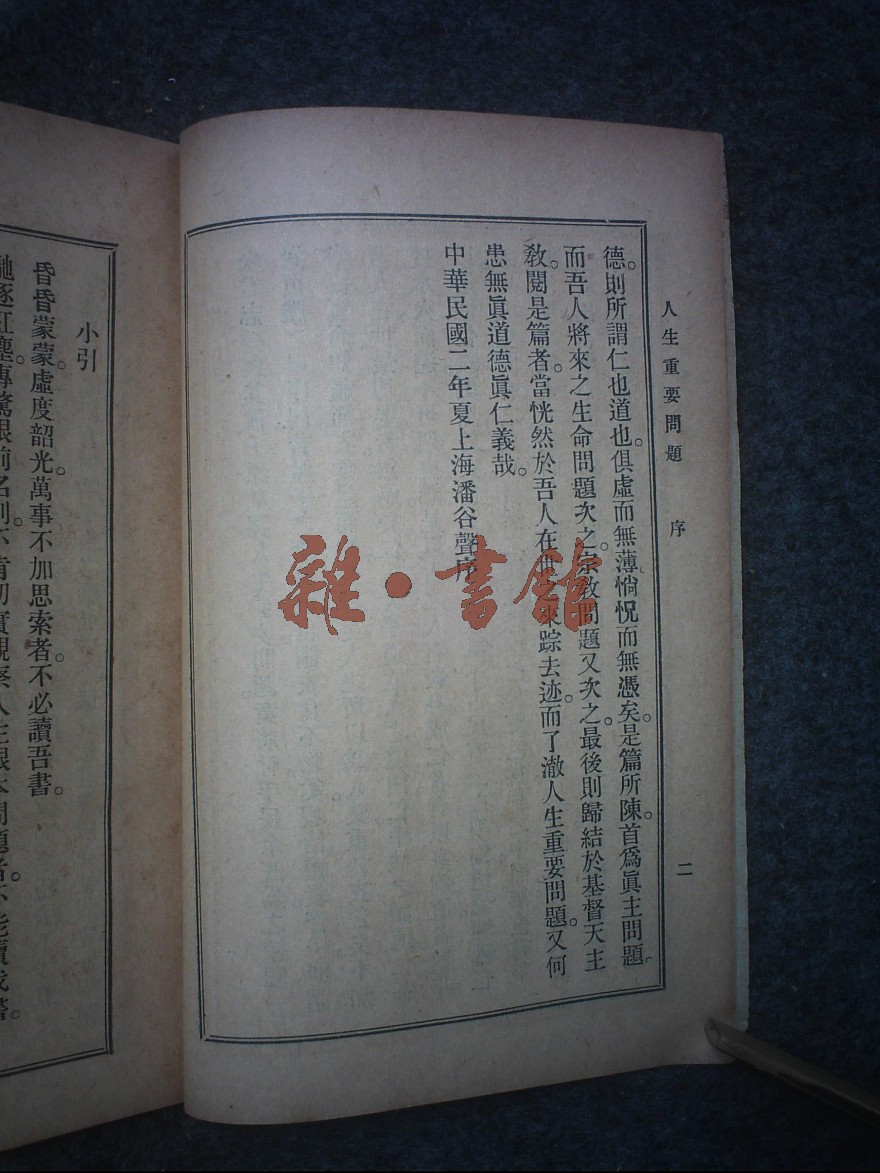 人生重要問題　序
二
德。則所謂仁也道也。俱虛而無薄。惝怳而無憑矣。是篇所陳。首爲眞主問題。
而吾人將來之生命問題次之。宗教問題又次之。最後則歸結於基督天主
教。閱是篇者。當恍然於吾人在世。來踪去迹。而了澈人生重要問題。又何
患無眞道德眞仁義哉。
中華民國二年夏上海潘谷聲序
小引
昏昏蒙蒙。虛度韶光。萬事不加思索者。不必讀吾書。
馳逐紅塵。專騖眼前名利。不肯切實觀察人生根本問題者。不能讀我書。
雜·書館